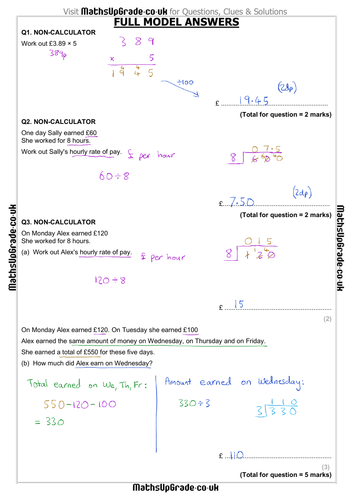 Visit MathsUpGrade·co·uk for Questions, Clues & Solutions
FULL MODEL ANSWERS
Q1. NON-CALCULATOR
Work out £3.89 × 5
389p
3 8 9
× 5
1 9 4 5
÷100
(2dp)
£ 19.45
(Total for question = 2 marks)
Q2. NON-CALCULATOR
One day Sally earned £60
She worked for 8 hours.
Work out Sally's hourly rate of pay.
£ per hour
60÷8
0 7.5
8 6 60 40
(2dp)
£ 7.50
(Total for question = 2 marks)
Q3. NON-CALCULATOR
On Monday Alex earned £120
She worked for 8 hours.
(a) Work out Alex's hourly rate of pay.
£ per hour
120÷8
0 1 5
8 1 12 40
£ 15
(2)
On Monday Alex earned £120. On Tuesday she earned £100
Alex earned the same amount of money on Wednesday, on Thursday and on Friday.
She earned a total of £550 for these five days.
(b) How much did Alex earn on Wednesday?
Total earned on We, Th, Fr:
550-120-100
= 330
Amount earned on Wednesday:
330÷3
1 1 0
3 3 3 0
£ 110
(3)
(Total for question = 5 marks)
MathsUpGrade·co·uk
MathsUpGrade·co·uk
MathsUpGrade·co·uk